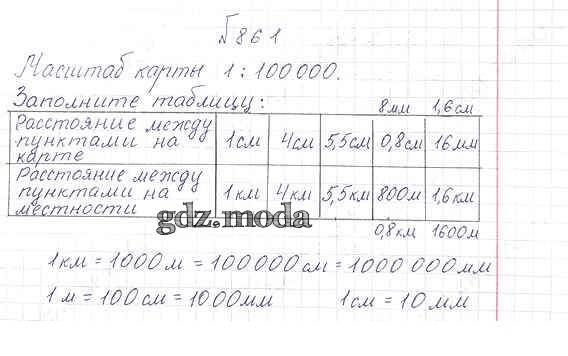 №861
Масштаб карты 1 : 100 000.
Заполните таблицу:
8мм 1,6см
Расстояние между пунктами на карте 1см 4см 5,5см 0,8см 16мм
Расстояние между пунктами на местности 1км 4км 5,5км 800м 1,6км
gdz.moda
0,8км 1600м
1км = 1000м = 100000см = 1000 000мм
1м = 100см = 1000мм 1см = 10мм